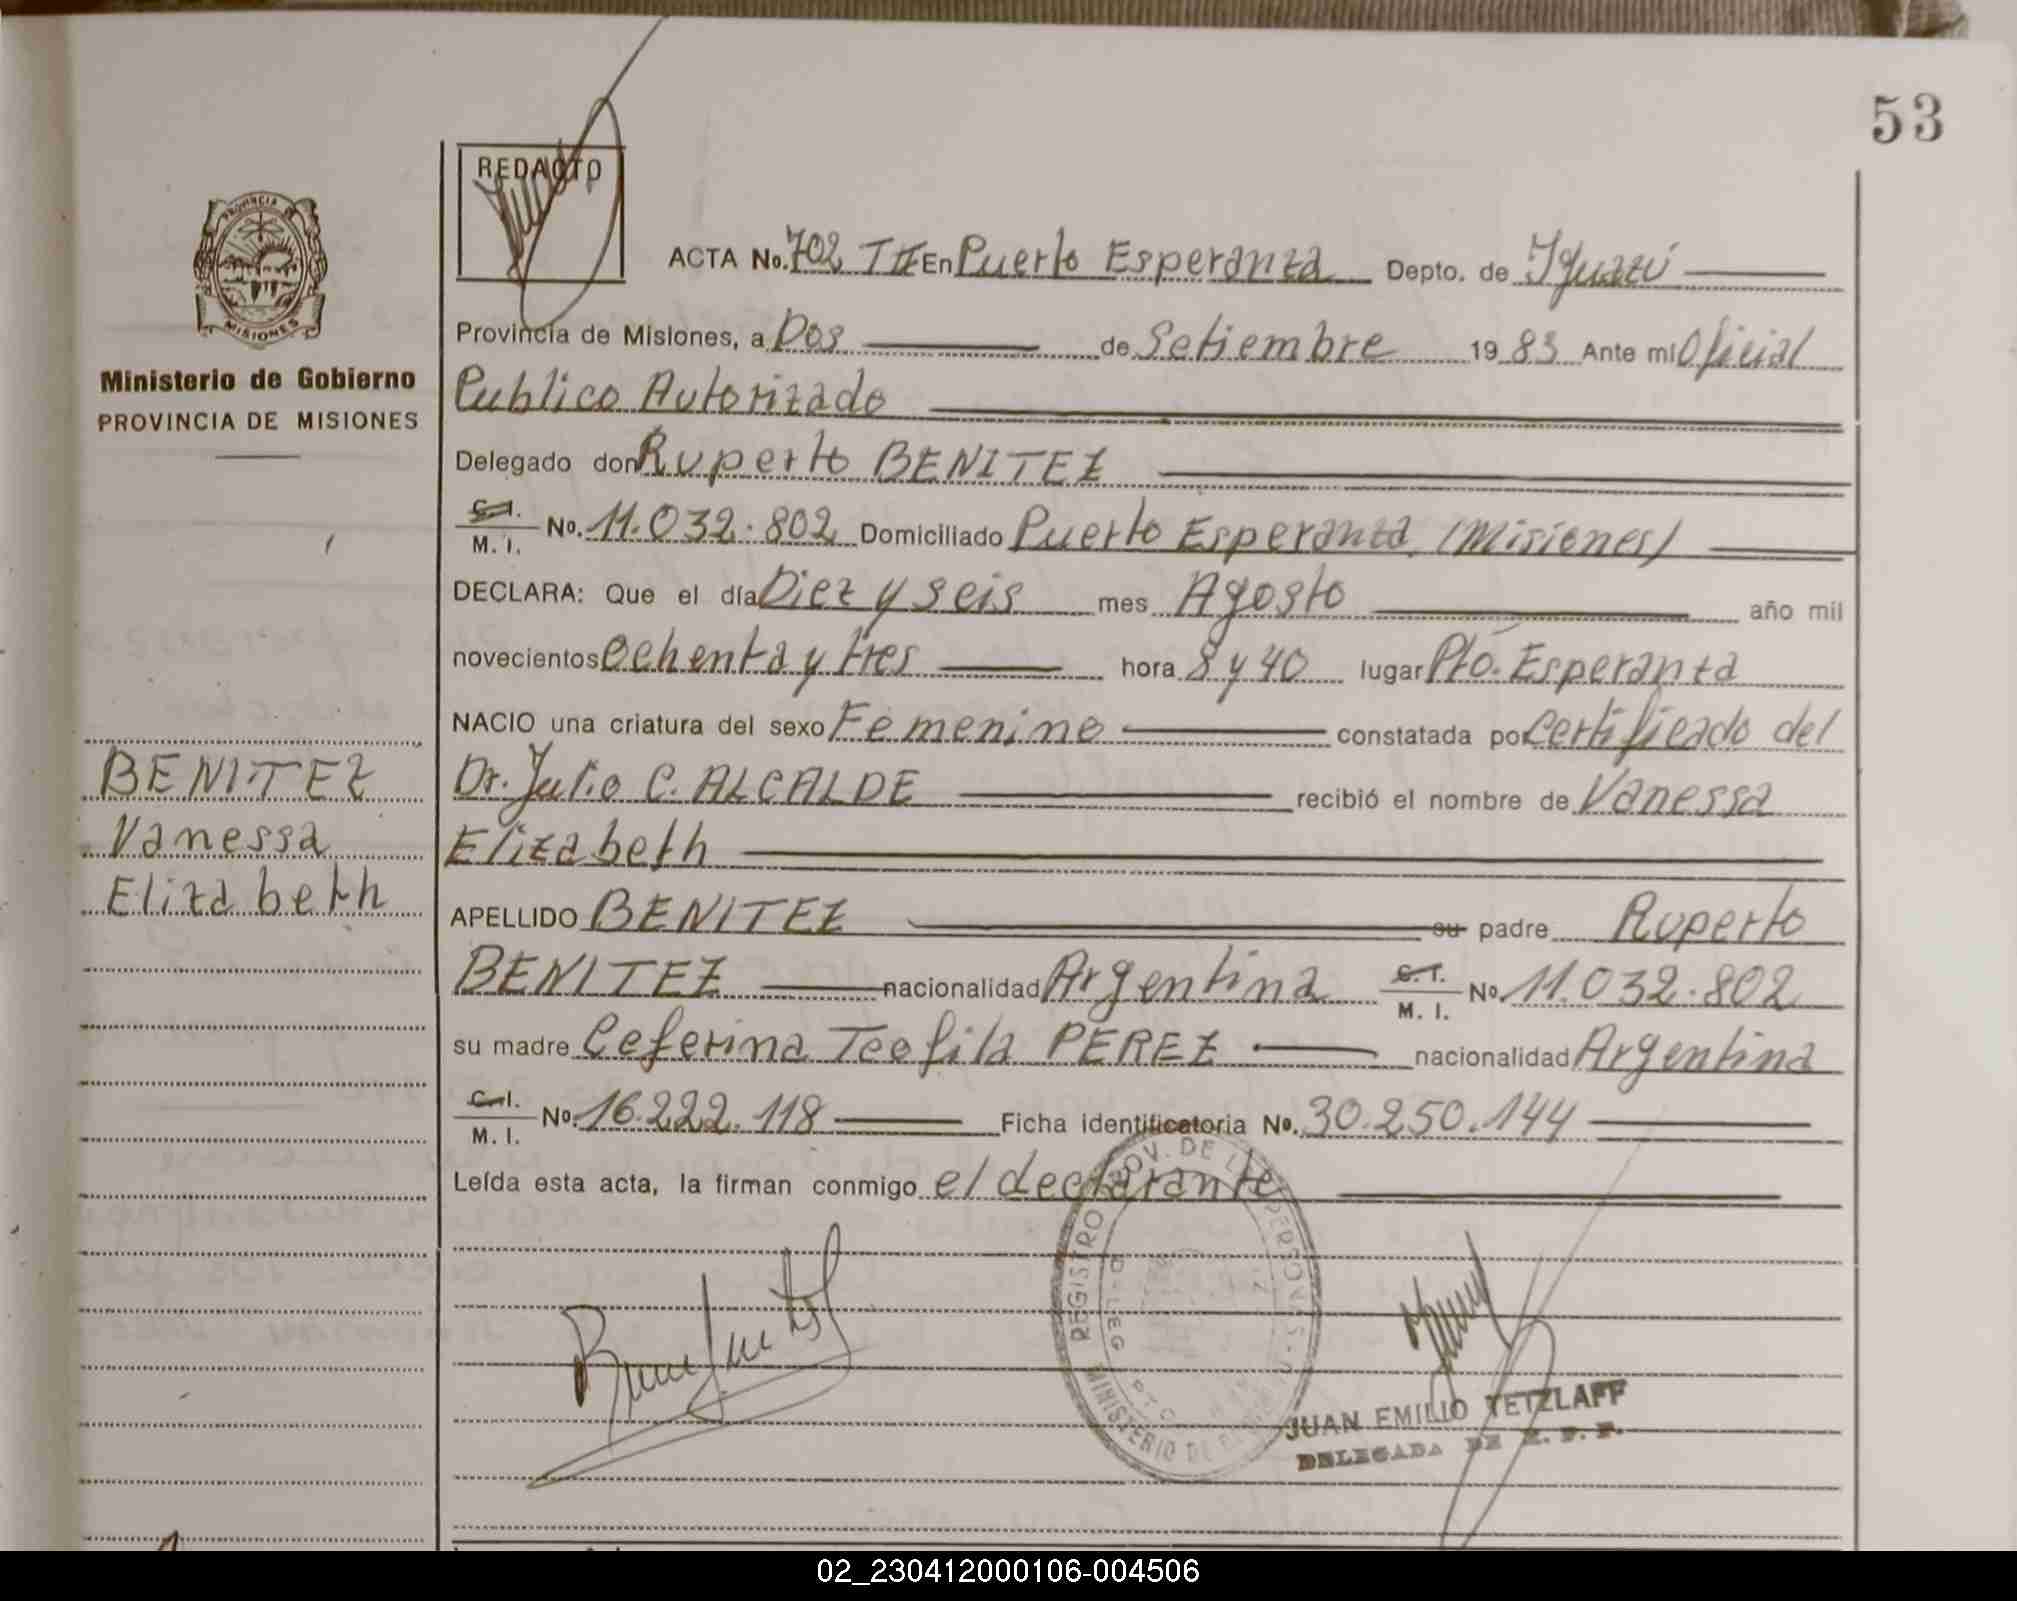 53
REDACTO
PROVINCIA DE
MISIONES
Ministerio de Gobierno
PROVINCIA DE MISIONES
BENITEZ
Vanessa
Elizabeth
ACTA No. 702 TII En Puerto Esperanza Depto. de Iguazú
Provincia de Misiones, a Dos de Setiembre 1983 Ante mi Oficial
Publico Autorizado
Delegado don Ruperto BENITEZ
C.I. M. I. No. 11.032.802 Domiciliado Puerto Esperanza (Misiones)
DECLARA: Que el día Diez y seis mes Agosto año mil
novecientos Ochenta y tres hora 8 y 40 lugar Pto. Esperanza
NACIO una criatura del sexo Femenino constatada por Certificado del
Dr. Julio C. ALCALDE recibió el nombre de Vanessa
Elizabeth
APELLIDO BENITEZ su padre Ruperto
BENITEZ nacionalidad Argentina C.I. M. I. No. 11.032.802
su madre Ceferina Teofila PEREZ nacionalidad Argentina
C.I. M. I. No. 16.222.118 Ficha identificatoria No. 30.250.144
Leída esta acta, la firman conmigo el declarante
REGISTRO PROV. DE L PERSONAS
MINISTERIO DE
JUAN EMILIO TETZLAFF
DELEGADA DE
02_230412000106-004506